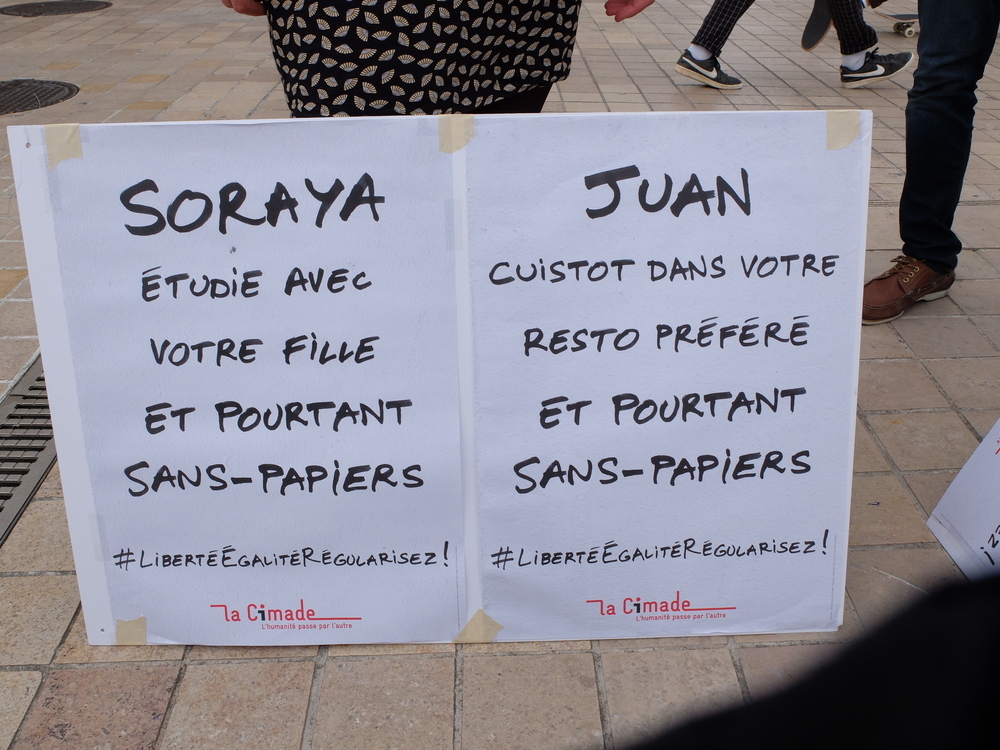 SORAYA
ÉTUDIE AVEC
VOTRE FILLE
ET POURTANT
SANS-PAPIERS
#LIBERTÉÉGALITÉRÉGULARISEZ!
la Cimade
L'humanité passe par l'autre
JUAN
CUISTOT DANS VOTRE
RESTO PRÉFÉRÉ
ET POURTANT
SANS-PAPIERS
#LIBERTÉÉGALITÉRÉGULARISEZ!
la Cimade
L'humanité passe par l'autre